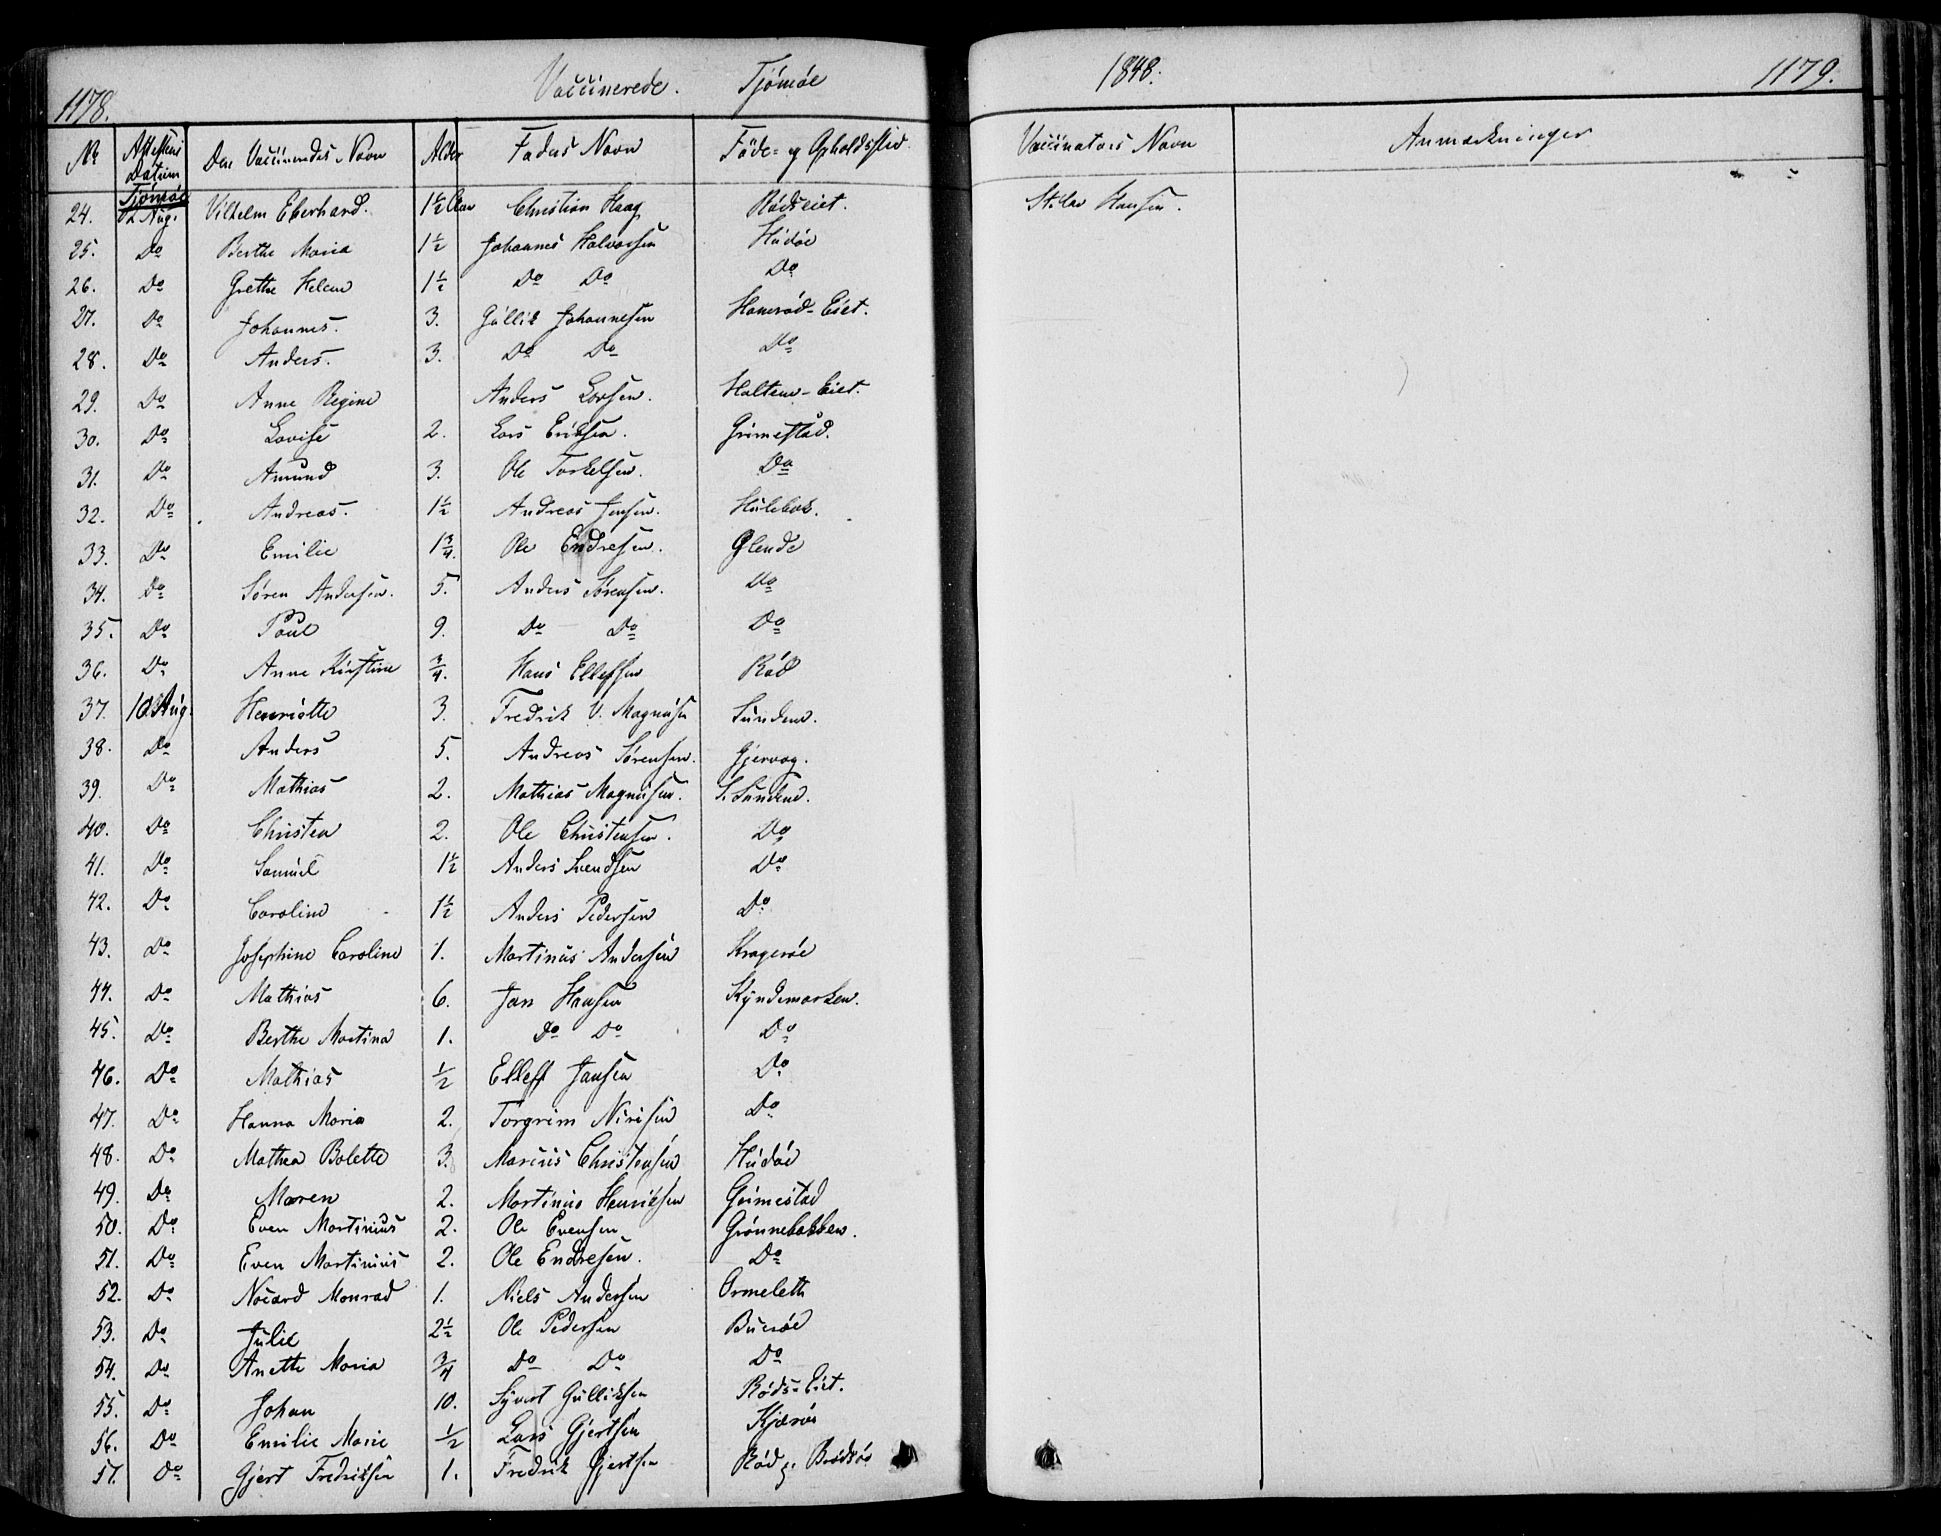 1178. Vaccinerede. Tjömöe 1848. 1179.
No Attestens Datum Den Vaccineredes Navn Alder Faders Navn Föde- og Opholdssted. Vaccinators Navn Anmærkninger
Tjömöe
24. 12 Aug. Vilhelm Eberhard. 1 1/2 Aar Christian Haag Rödseiet. Hansen.
25. Do Berthe Maria 1 1/2 Johannes Halvorsen Hudöe
26. Do Grethe Helene 1 1/2 Do Do Do
27. Do Johannes. 3. Gullik Johannesen Honeröd-Eiet.
28. Do Anders. 3. Do Do Do
29. Do Anne Regine Anders Larsen. Holtene-Eiet.
30. Do Lovise 2. Lars Eriksen. Grimestad.
31. Do Amund 3. Ole Torkelsen. Do
32. Do Andreas. 1 1/2 Andreas Jensen. Hulebak.
33. Do Emilie 1 3/4. Ole Endresen. Glende
34. Do Sören Andersen. 5. Anders Sörensen. Do
35. Do Poul 9. Do Do Do
36. Do Anne Kirstine 3/4. Hans Ellefsen Röd
37. 10 Aug. Henriette 3. Fredrik V. Magnusen Sundene.
38. Do Anders 5. Andreas Sörensen. Gjervaag.
39. Do Mathias 2. Mathias Magnusen. S. Sundene.
40. Do Christen 2. Ole Christensen. Do
41. Do Samuel 1 1/2 Anders Svendsen Do
42. Do Caroline 1 1/2 Anders Pedersen Do
43. Do Josephine Caroline 1. Martinus Andersen Krageröe
44. Do Mathias 6. Jan Hansen Kyndemarken.
45. Do Berthe Martina 1. Do Do Do
46. Do Mathias 1/2 Elleff Jansen Do
47. Do Hanna Maria 2. Torgrim Nirisen Do
48. Do Mathea Bolette 3. Marcus Christensen Hudöe
49. Do Maren 2. Martinus Henriksen Grimestad
50. Do Even Martinius 2. Ole Evensen Grönnebakken.
51. Do Even Martinius 2. Ole Endresen. Do
52. Do Nicard Monrad 1. Niels Andersen Ormeleth
53. Do Julie 2 1/2 Ole Pedersen Bueröe
54. Do Anette Maria 3/4 Do Do Do
55. Do Johan 10. Syvert Gulliksen Röds-Eiet.
56. Do Emilie Marie 1/2 Lars Gjertsen Kjæröe
57. Do Gjert Fredriksen 1. Fredrik Gjertsen Röd